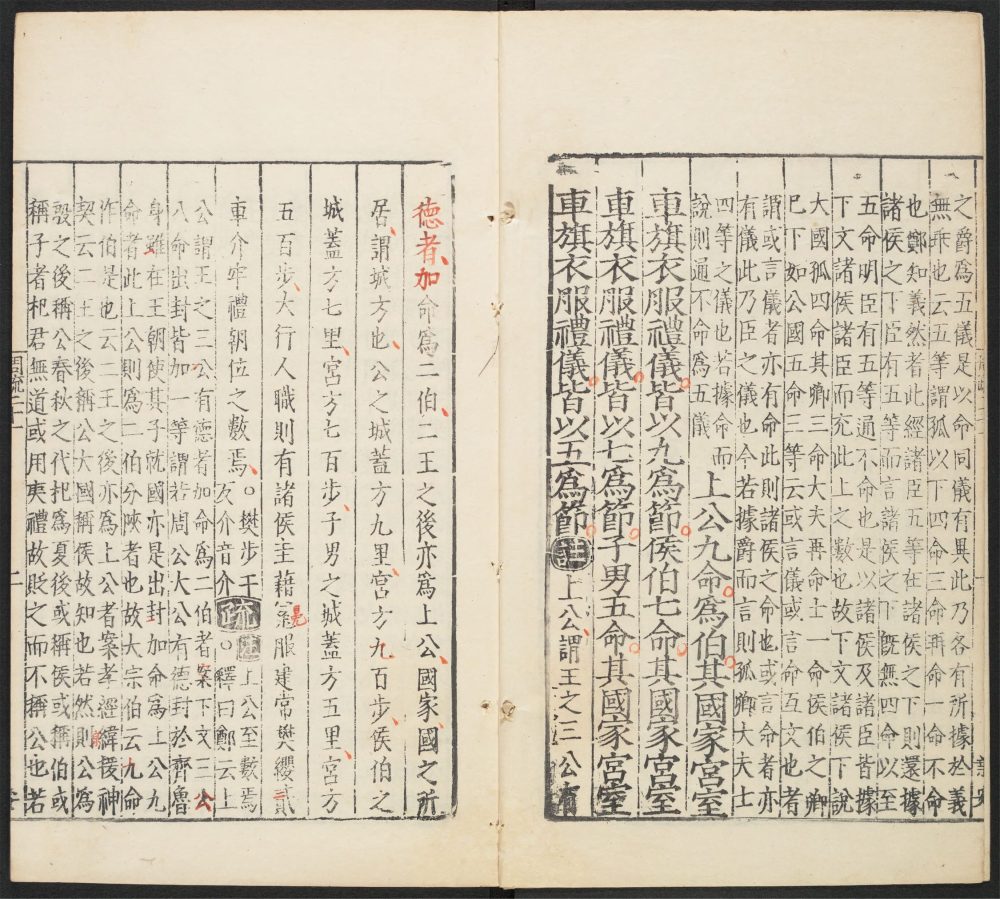 之爵爲五儀是以命同儀有異此乃各有所據於義
無乖也云五等謂孤以下四命三命再命一命不命
也鄭知義然者此經諸臣五等在諸侯之下則還據
諸侯之下臣有五等而言諸侯之下既無四命以至
五命明臣有五等通不命也是以諸侯及諸臣皆據
下文諸侯諸臣而充此上之數也故下文諸侯下說
大國孤四命其卿三命大夫再命士一命侯伯之卿
已下如公國五命三等云或言儀或言命互文也者
謂或言儀者亦有命此則諸侯之命也或言命者亦
有儀此乃臣之儀也今若據爵而言則孤卿大夫士
四等之儀也若據命而
說則通不命爲五儀
上公九命爲伯其國家宮室
車旗衣服禮儀皆以九爲節侯伯七命其國家宮室
車旗衣服禮儀皆以七爲節子男五命其國家宮室
車旗衣服禮儀皆以五爲節注上公謂王之三公有
德者加命爲二伯二王之後亦爲上公國家國之所
居謂城方也公之城蓋方九里宮方九百步侯伯之
城蓋方七里宮方七百步子男之城蓋方五里宮方
五百步大行人職則有諸侯圭藉冕服建常樊纓貳
車介牢禮朝位之數焉。樊步干
反介音介疏注上公至數焉
。釋曰鄭云上
公謂王之三公有德者加命爲二伯者案下文三公
八命出封皆加一等謂若周公大公有德封於齊魯
身雖在王朝使其子就國亦是出封加命爲上公九
命者此上公則爲二伯分陜者也故大宗伯云九命
作伯是也云二王之後亦爲上公者案孝經緯援神
契云二王之後稱公大國稱侯故知也若然則公爲
殷之後稱公春秋之代杞爲夏後或稱侯或稱伯或
稱子者杞君無道或用夷禮故貶之而不稱公也若
周疏二十一
二